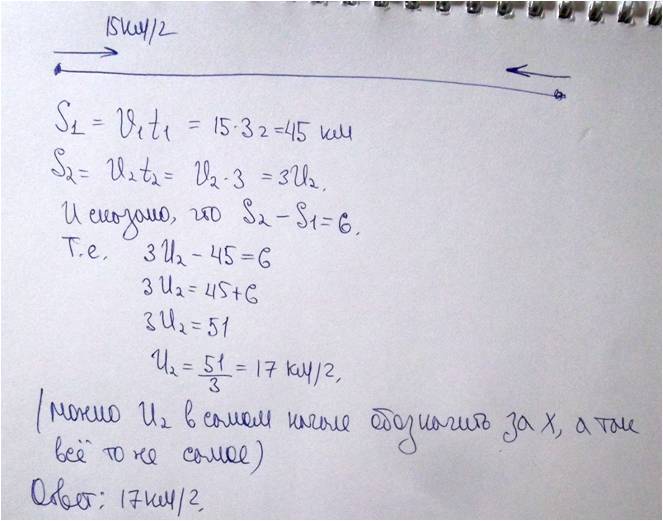 15км/ч
S₁ = V₁t₁ = 15·3ч=45 км
S₂= U₂t₂= U₂·3 =3U₂.
И сказано, что S₂-S₁=6.
Т.е. 3U₂-45=6
3U₂=45+6
3U₂=51
U₂=51/3=17 км/ч.
(можно U₂ в самом начале обозначить за х, а так
всё то же самое)
Ответ: 17км/ч.